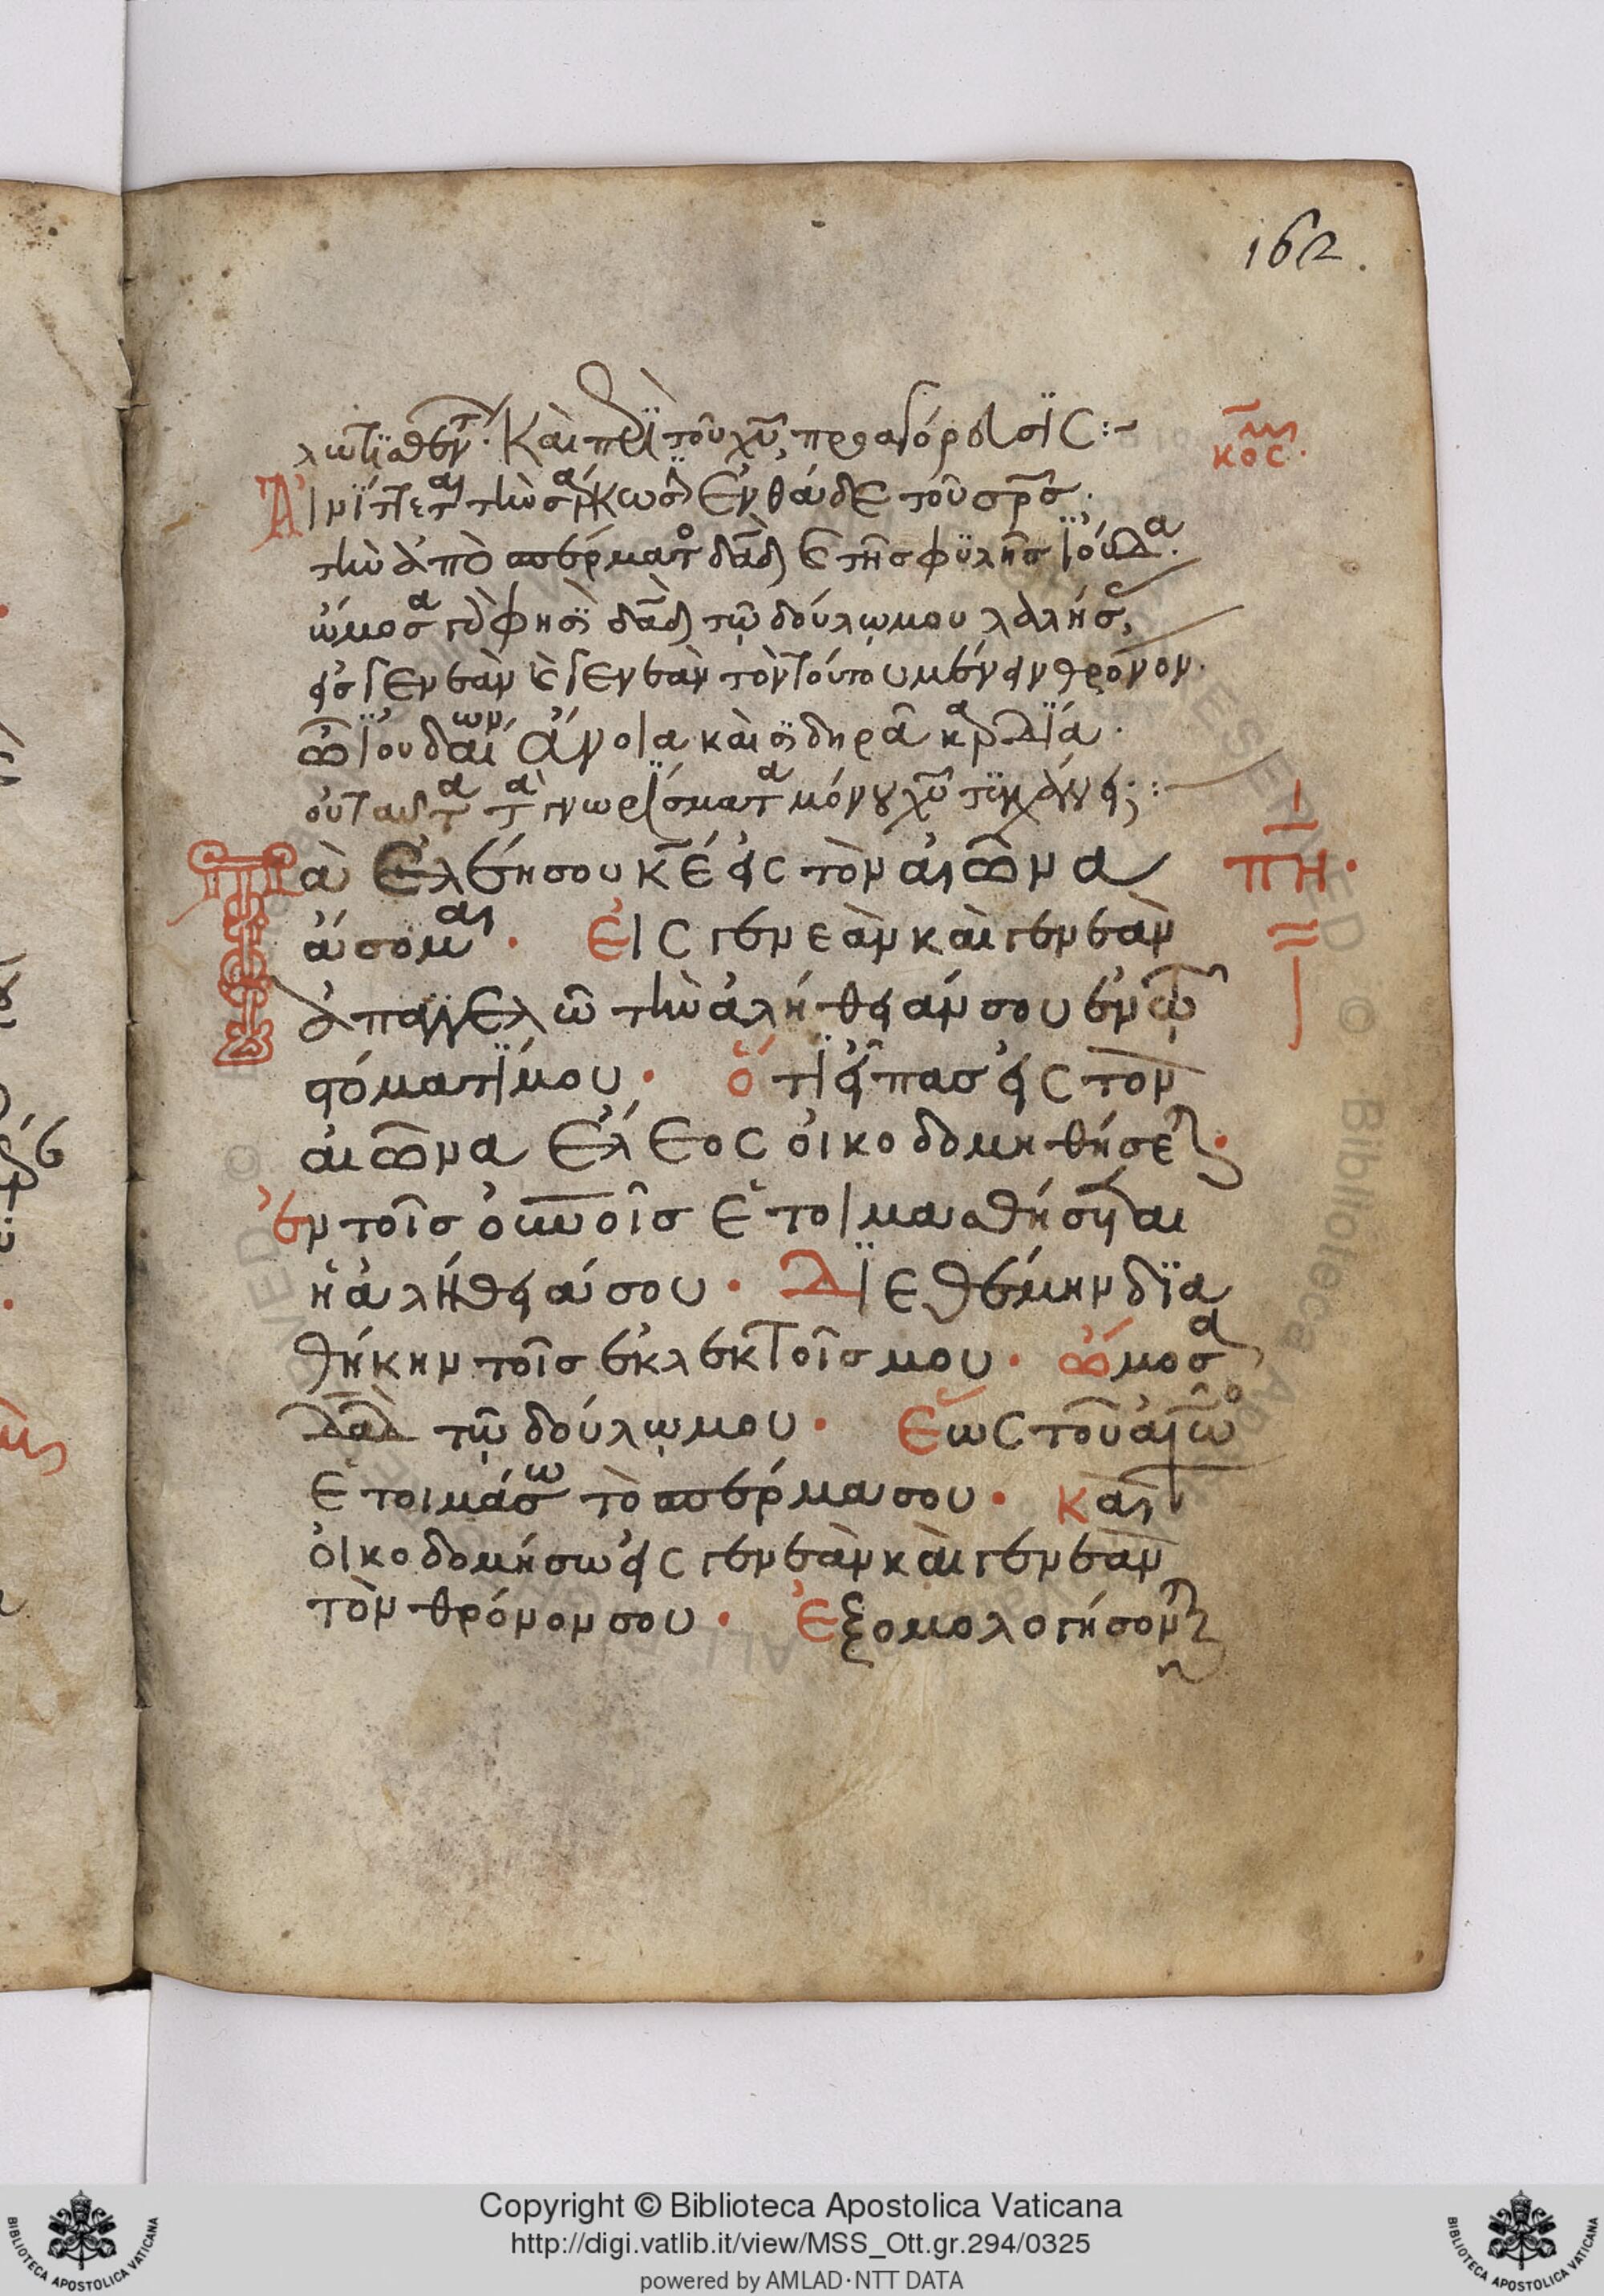 162.
λωτϊσθέν. Καὶ περὶ τοῦ χυ προαγόρευσϊς :~
κος.
Αἰνίττεται τὴν σάρκωσιν ἐνθάδε τοῦ σρσ.
τὴν ἀπὸ σπέρματος δαδ ἐκ τῆς φϋλῆς Ἰούδα.
ὤμοσα γὰρ φησὶ δαδ τῷ δούλῳ μου
εἰς γενεὰν καὶ γενεὰν τὸν θρόνον.
ὦ Ἰουδαίων ἄνοια καὶ σιδηρᾶ καρδϊά.
οὐ ταῦτα τὰ γνωρίσματα μόνου χυ τυγχάνει; :
Τὰ ἐλέη σου κε εἰς τὸν αἰῶνα
ΠΗ.
ἄσομαι. Εἰς γενεὰν καὶ γενεὰν
ἀπαγγελῶ τὴν ἀλήθειάν σου ἐν τῷ
στόματί μου. ὅτι εἶπας εἰς τὸν
αἰῶνα ἔλεος οἰκοδομηθήσεται.
ἐν τοῖς οὐνοῖς ἑτοιμασθήσεται
ἡ ἀλήθειά σου. Διεθέμην δϊα
θήκην τοῖς ἐκλεκτοῖς μου. ὤμοσα
δαδ τῷ δούλῳ μου. Ἕως τοῦ αἰῶνος
ἑτοιμάσω τὸ σπέρμα σου. καὶ
οἰκοδομήσω εἰς γενεὰν καὶ γενεὰν
τὸν θρόνον σου. Ἐξομολογήσονται
Copyright © Biblioteca Apostolica Vaticana
http://digi.vatlib.it/view/MSS_Ott.gr.294/0325
powered by AMLAD·NTT DATA
BIBLIOTECA APOSTOLICA VATICANA
BIBLIOTECA APOSTOLICA VATICANA